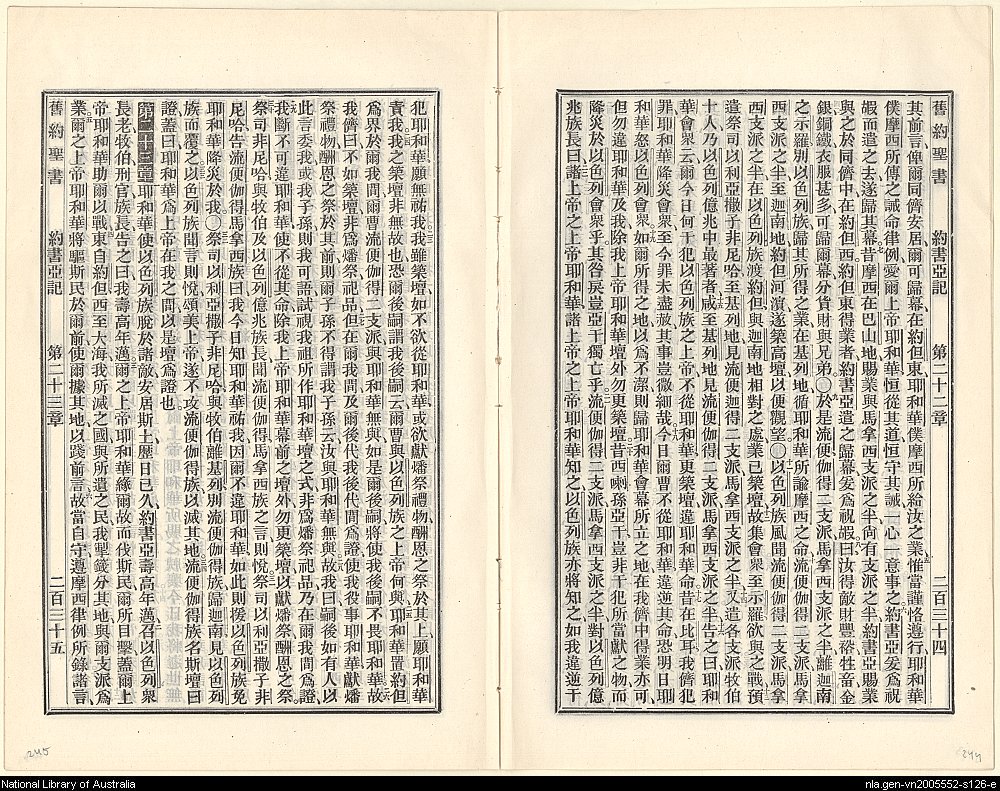 舊約聖書 約書亞記 第二十二章 二百三十四
其前言俾爾同儕安居爾可歸幕在約但東耶和華僕摩西所給汝之業惟當謹恪遵行耶和華
僕摩西所傳之誡命律例愛爾上帝耶和華恒從其道恒守其誡一心一意事之約書亞爰為祝
嘏而遣之去遂歸其幕昔摩西在巴山地賜業與馬拿西支派之半尙有支派之半約書亞賜業
與之於同儕中在約但西約但東得業者約書亞遣之歸幕爰為祝嘏曰汝得敵財豐裕牲畜金
銀銅鐵衣服甚多可歸爾幕分貨財與兄弟○於是流便伽得二支派馬拿西支派之半離迦南
之示羅別以色列族歸其所得之業在基列地循耶和華所諭摩西之命流便伽得二支派馬拿
西支派之半至迦南地約但河濱遂築高壇以便觀望○以色列族風聞流便伽得二支派馬拿
西支派之半在以色列族渡約但與迦南地相對之處業已築壇故集會眾至示羅欲與之戰預
遣祭司以利亞撒子非尼哈至基列地見流便迦得二支派馬拿西支派之半又遣各支派牧伯
十人乃以色列億兆中最著者咸至基列地見流便伽得二支派馬拿西支派之半告之曰耶和
華會眾云爾今日何干犯以色列族之上帝不從耶和華更築壇違耶和華命昔在比珥我儕犯
罪耶和華降災會眾至今罪未盡赦其事豈微細哉今日爾曹不從耶和華違逆其命恐明日耶
和華怒以色列會眾如爾所得之地以為不潔則歸耶和華會幕所立之地在我儕中得業亦可
但勿違耶和華及我除我上帝耶和華壇外勿更築壇昔西喇孫亞干豈非干犯所當獻之物而
降災於以色列會眾乎其咎戾豈亞干獨亡乎流便伽得二支派馬拿西支派之半對以色列億
兆族長曰諸上帝之上帝耶和華諸上帝之上帝耶和華知之以色列族亦將知之如我違逆干
犯耶和華願無祐我我雖築壇如不欲從耶和華或欲獻燔祭禮物酬恩之祭於其上願耶和華
責我我之築壇非無故也恐爾後嗣謂我後嗣云爾曹與以色列族之上帝何與耶和華置約但
為界於爾我間爾曹流便伽得二支派與耶和華無與如是爾後嗣將使我後嗣不畏耶和華故
我儕曰不如築壇非為燔祭祀品但在爾我間以及爾後代我後代間為證使我役事耶和華獻燔
祭禮物酬恩之祭於其前則爾子孫不得謂我子孫云汝與耶和華無與故我曰嗣後如有人以
此言委我或我子孫則我可語試視我祖所作耶和華壇之式非為燔祭祀品乃在爾我間為證
我斷不可違耶和華使不從其命除我上帝耶和華幕前之壇外勿更築壇以獻燔祭酬恩之祭
祭司非尼哈與牧伯及以色列億兆族長聞流便伽得馬拿西族之言則悅祭司以利亞撒子非
尼哈告流便伽得馬拿西族曰我今日知耶和華祐我因爾不違耶和華如此則援以色列族免
耶和華降災於我○祭司以利亞撒子非尼哈與牧伯離基列別流便伽得族歸迦南見以色列
族而覆之以色列族聞言則悅頌美上帝遂不攻流便伽得族以滅其地流便伽得族名斯壇曰
證蓋曰耶和華為上帝在我之間以是壇為證也
第二十三章耶和華使以色列族脫於諸敵安居斯土歷日已久約書亞壽高年邁召以色列眾
長老牧伯刑官族長告之曰我壽高年邁爾之上帝耶和華緣爾故而伐斯民爾所目擊蓋爾上
帝耶和華助爾以戰東自約但西至大海我所滅之國與所遺之民我掣籤分其地與爾支派為
業爾之上帝耶和華將驅斯民於爾前使爾據其地以踐前言故當自守遵摩西律例所錄諸言
舊約聖書 約書亞記 第二十三章 二百三十五
244
245
National Library of Australia
nla.gen-vn2005552-s126-e